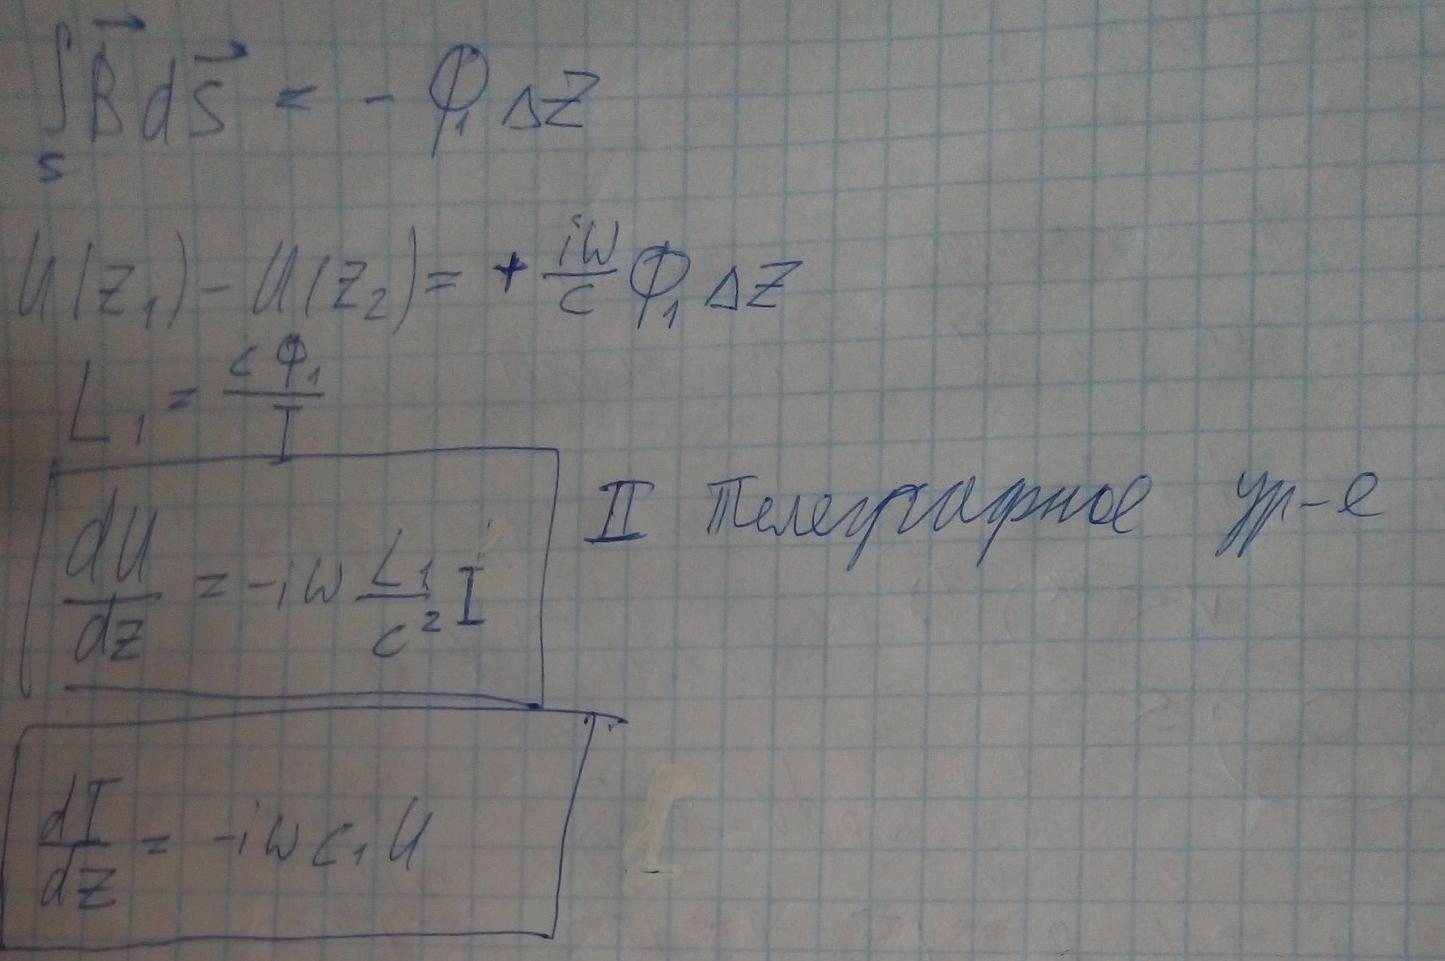 ∫_S B⃗ dS⃗ = - Φ₁ ΔZ
U(z₁) - U(z₂) = + iω/c Φ₁ ΔZ
L₁ = cΦ₁/I
dU/dz = -iω L₁/c² I II Телеграфное ур-е
dI/dz = -iω c₁ U